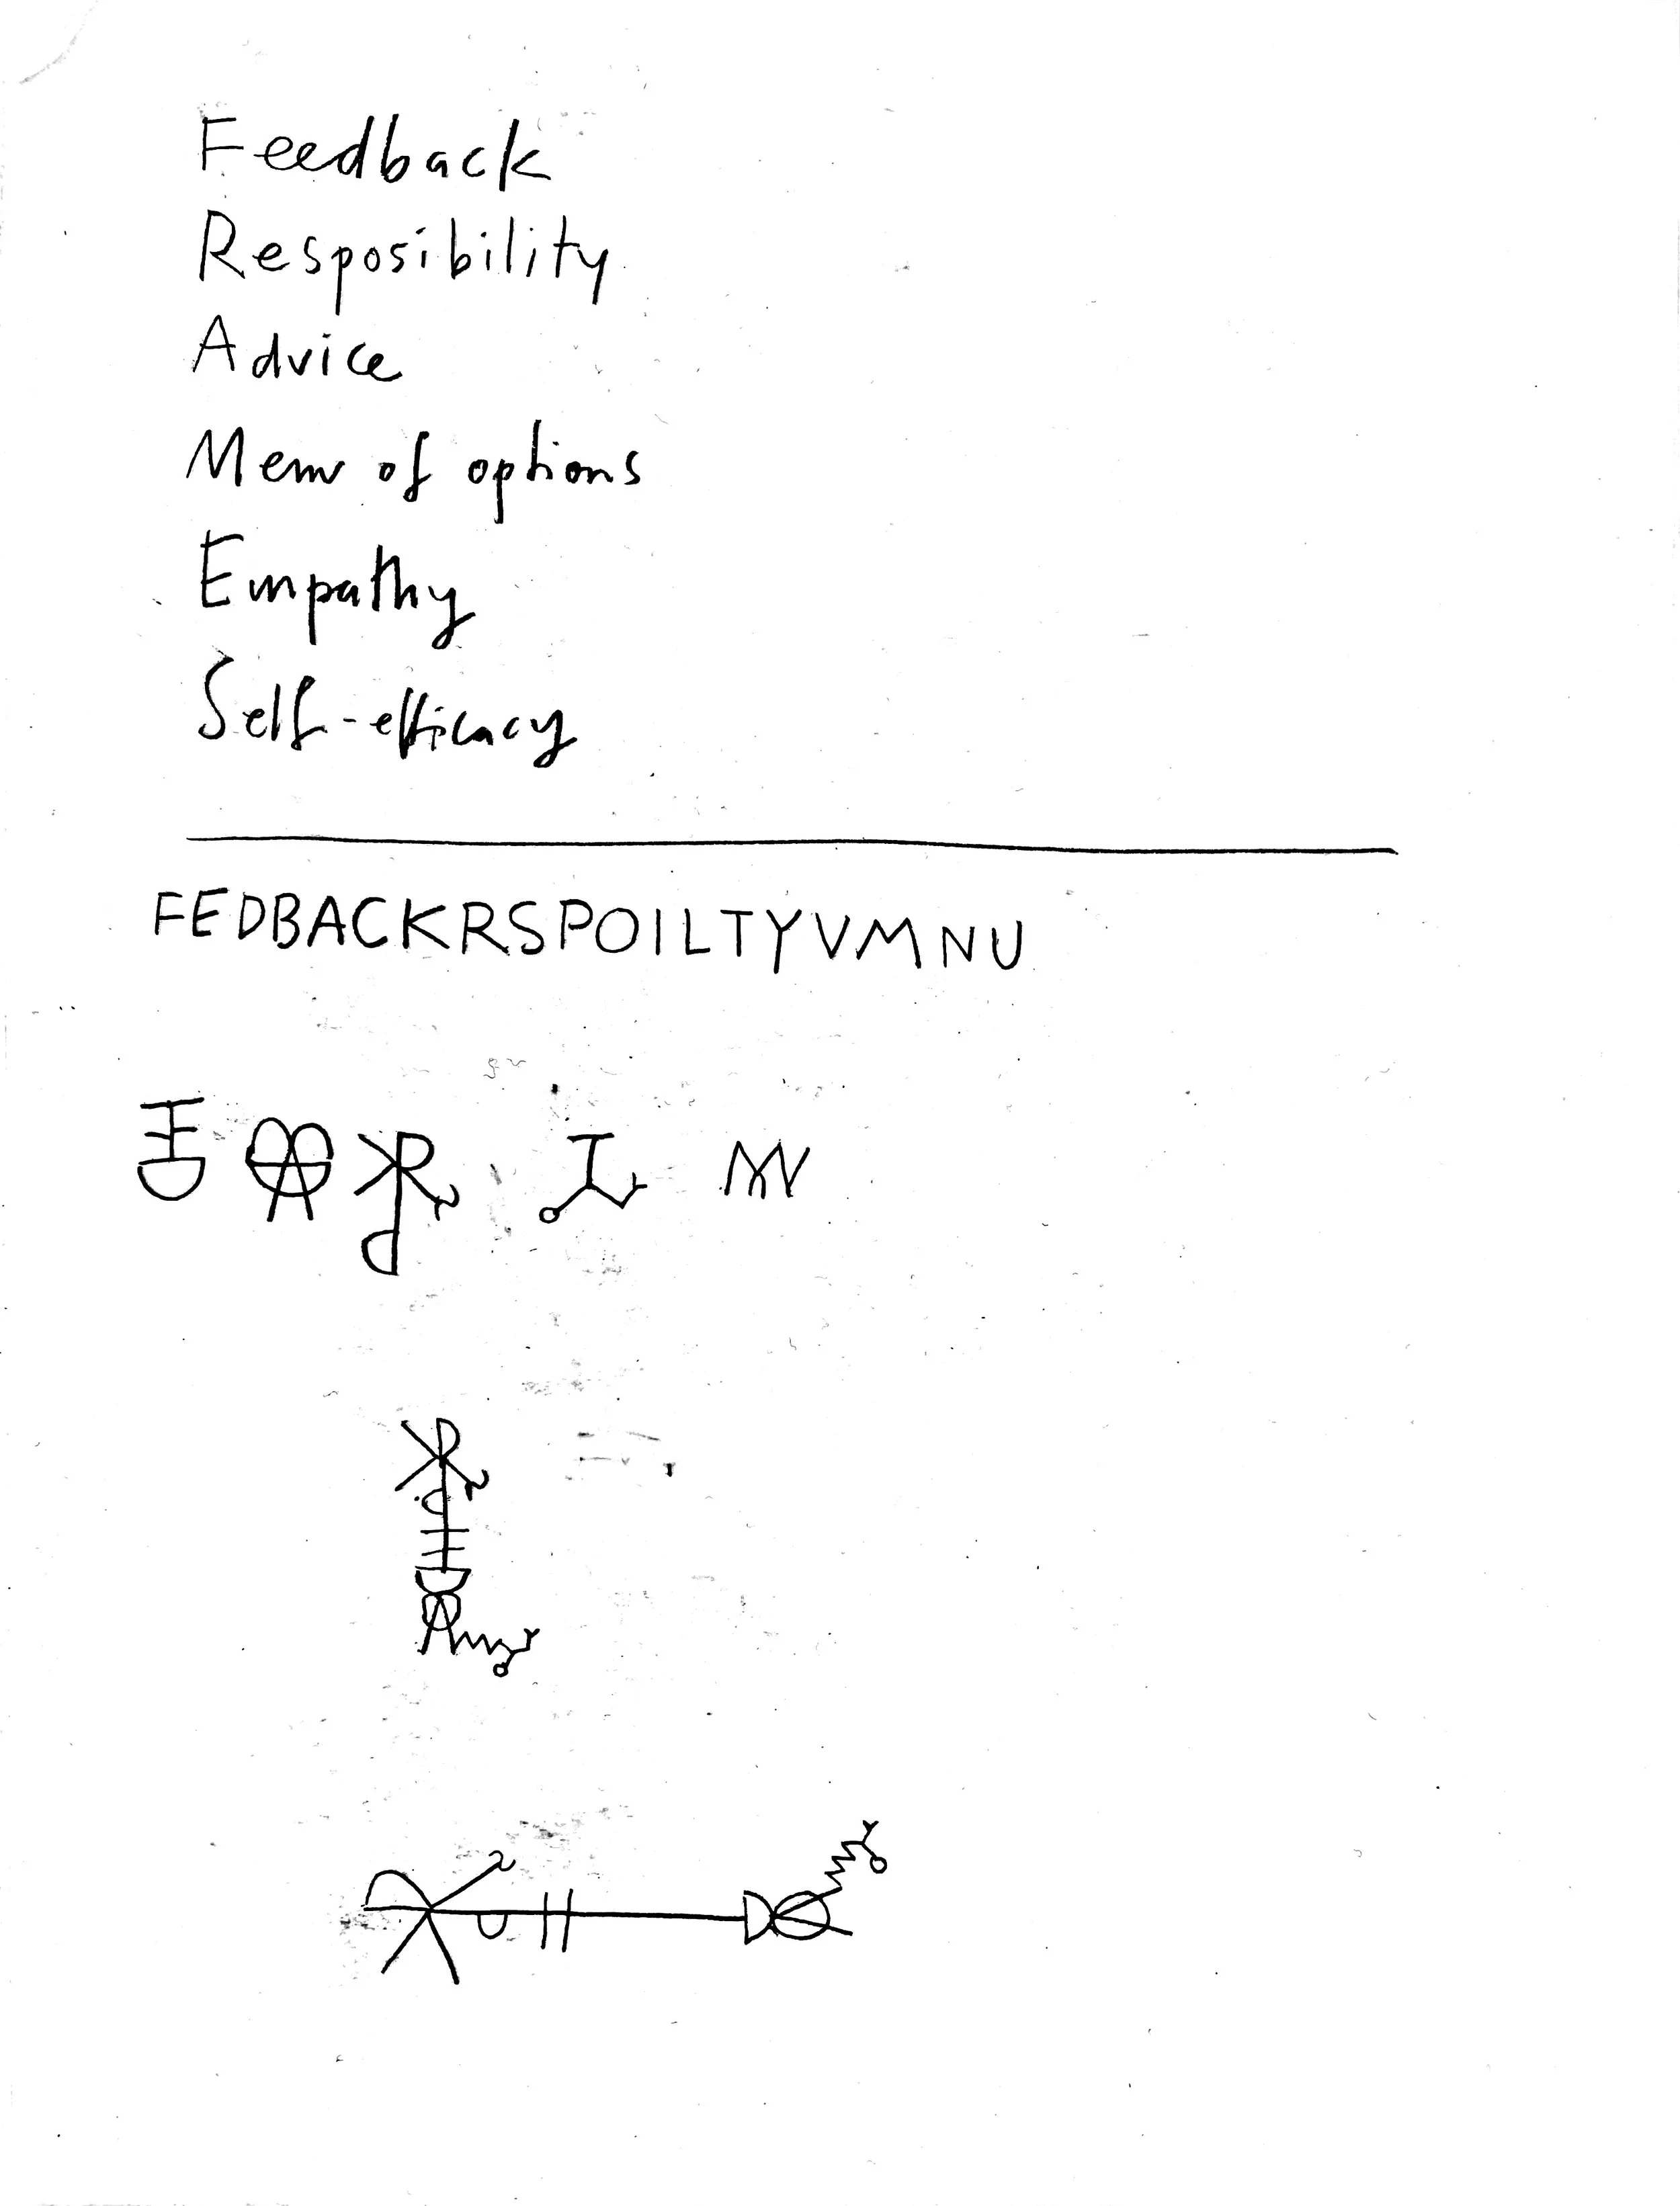 Feedback
Resposibility
Advice
Menu of options
Empathy
Self-efficacy
FEDBACKRSPOILTYVMNU